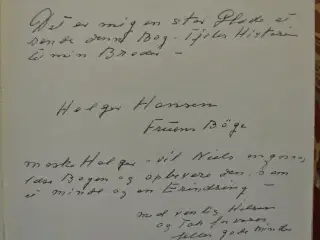 Det er mig en stor Glæde at
sende denne Bog - Fjelles Historie
til min Broder -
Holger Hansen
Fruens Böge
maske Holger - vil Niels engang
læse Bogen og opbevare den som
et minde og en Erindring -
med venlig Hilsen
og Tak for vores
fælles gode minder